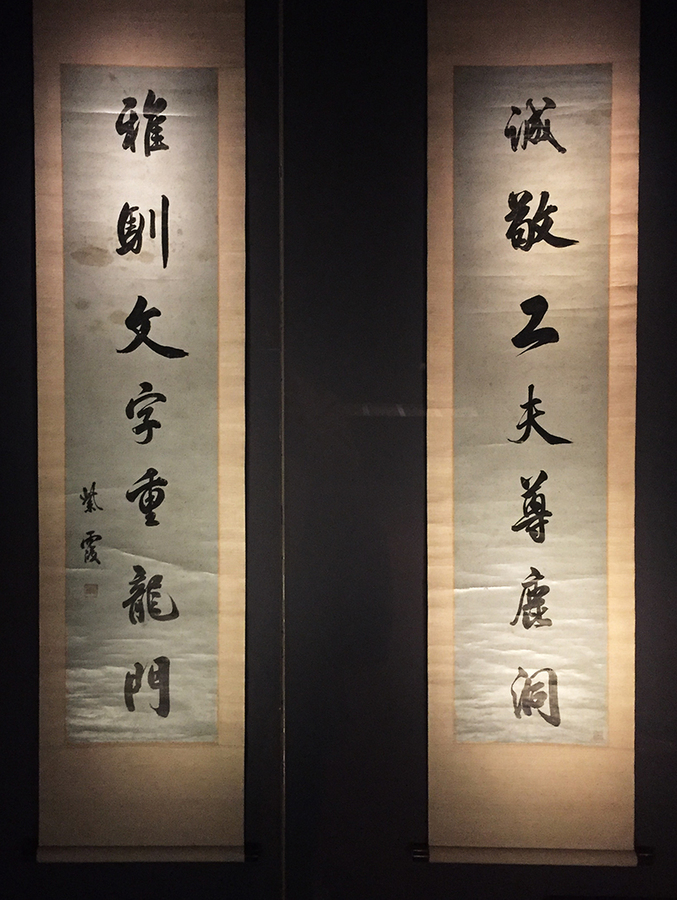 诚敬工夫尊鹿洞
雅馴文字重龍門
紫霞